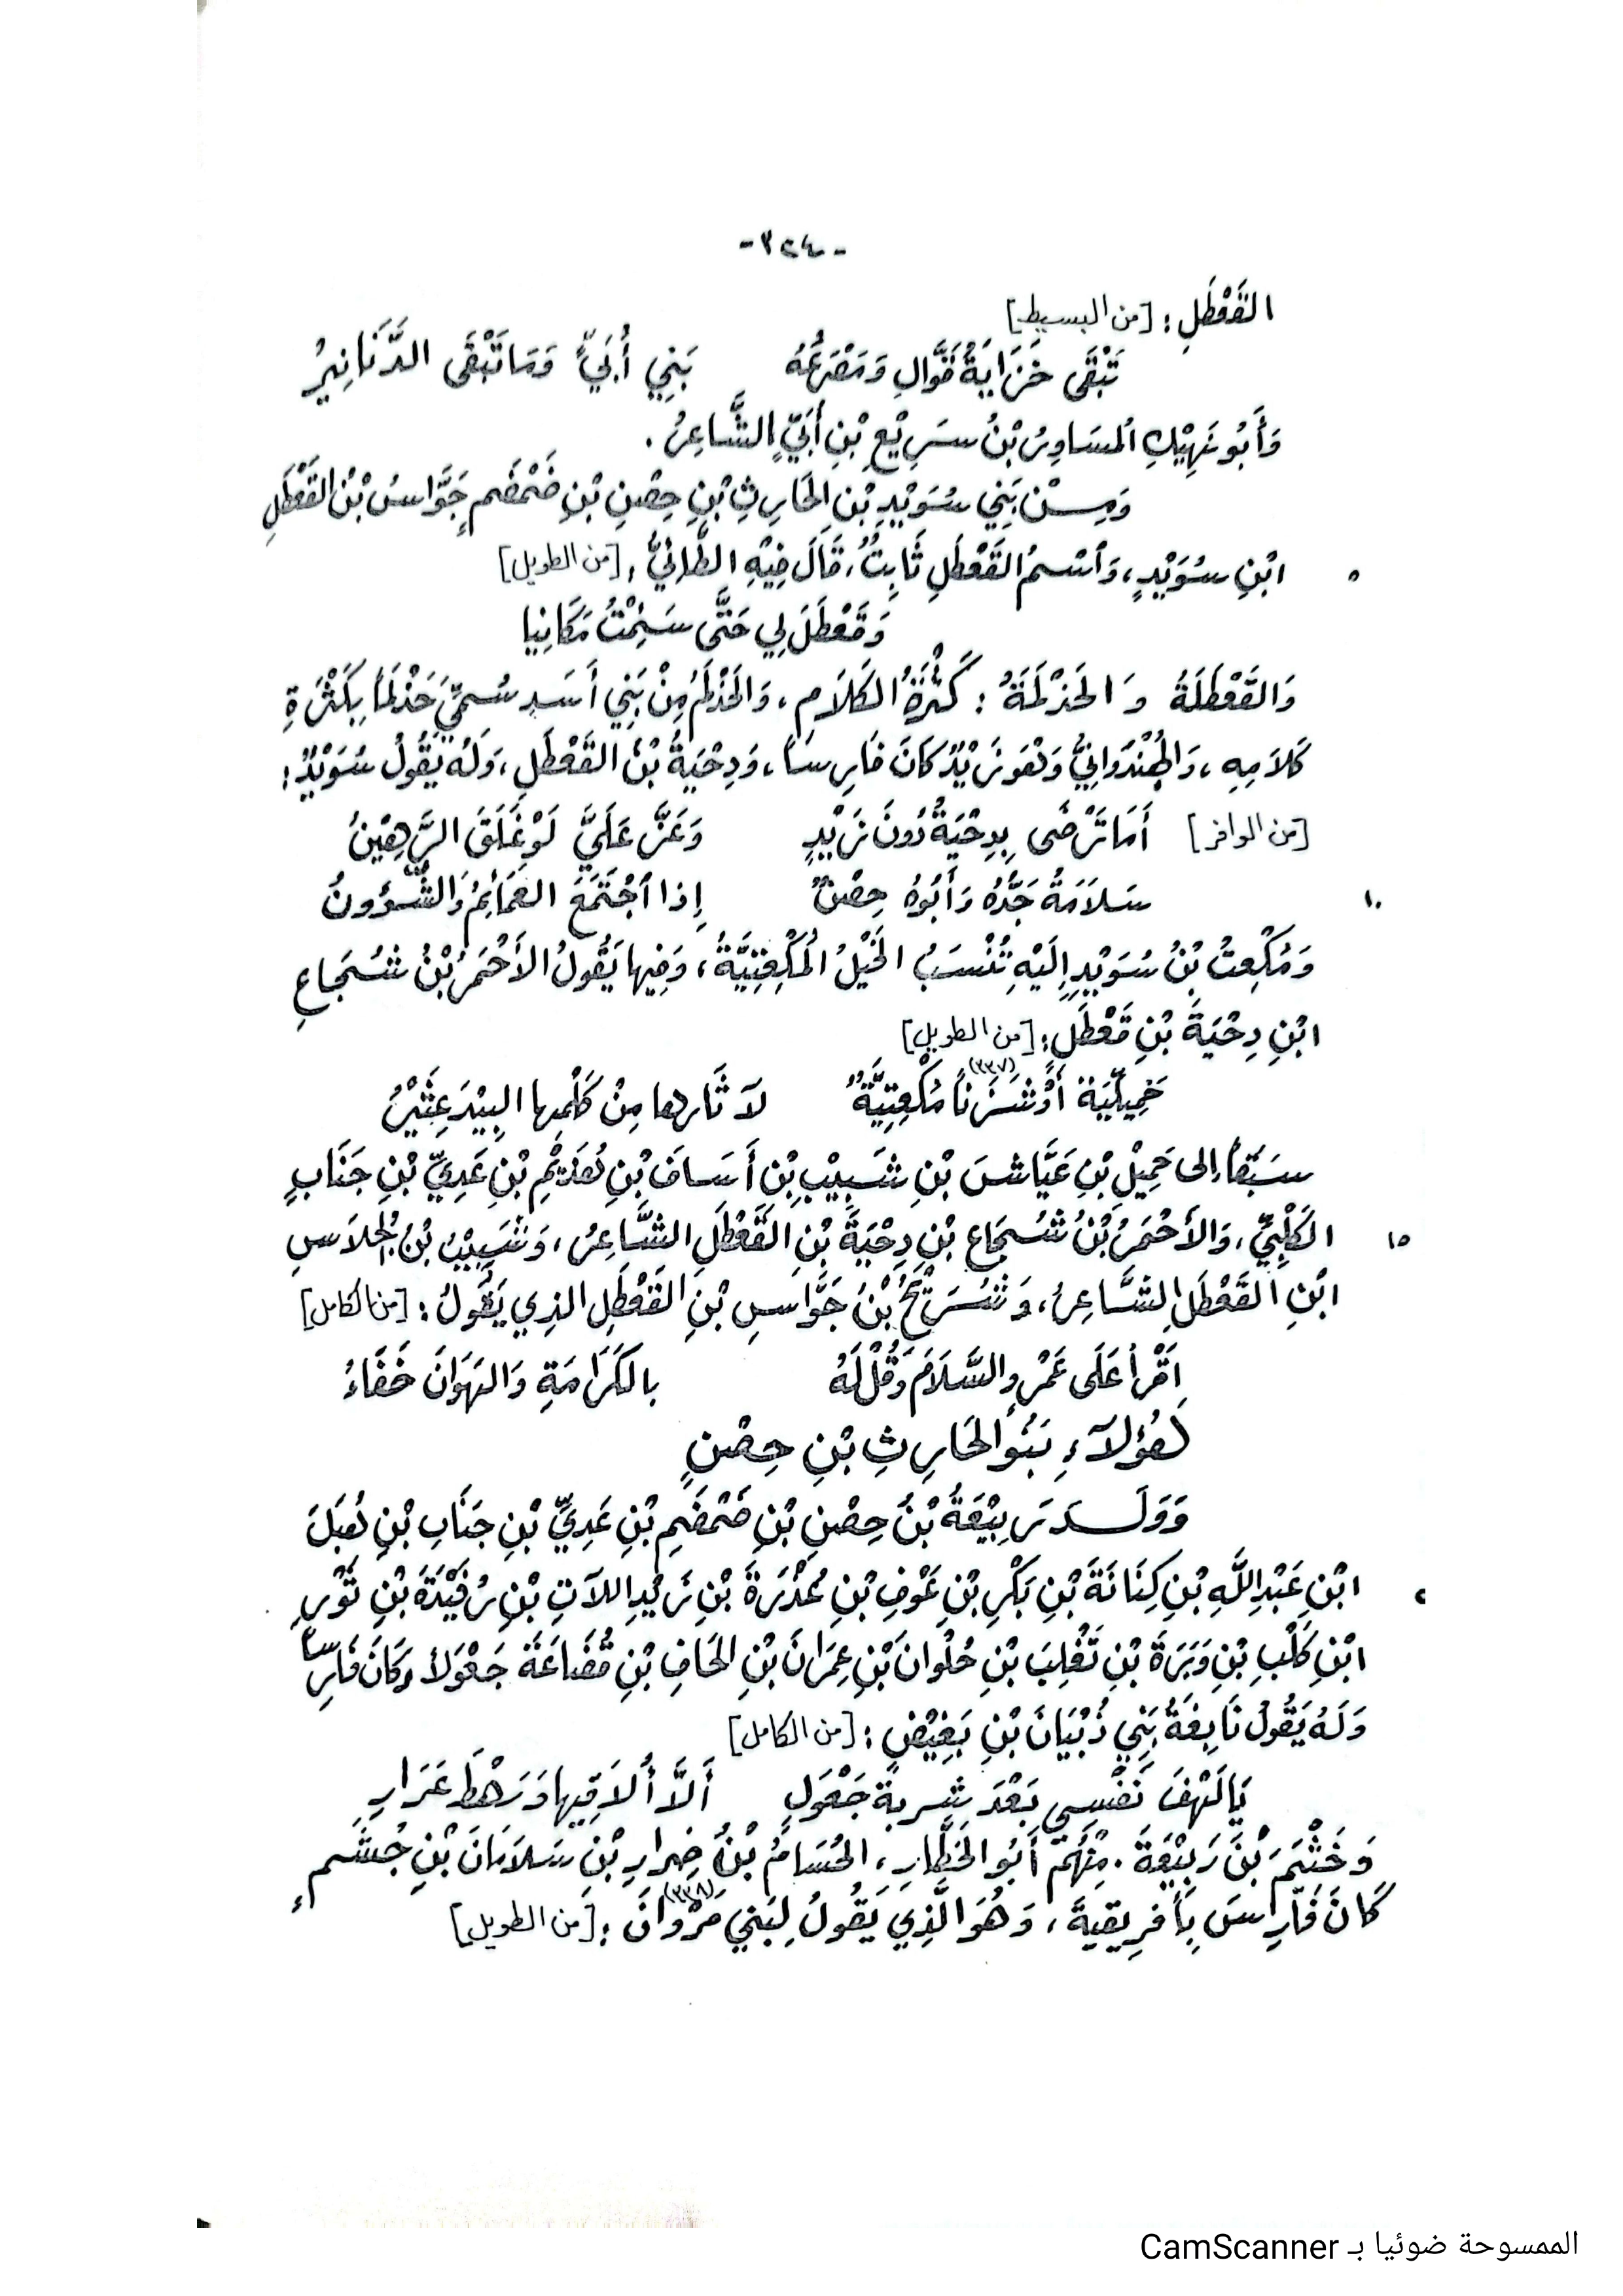 -٣٢٤-
القَعْطَلِ: [من البسيط]
تَبْقَى خَزَايَةُ قَوَّالٍ وَمَصْرَعُهُ بَنِي أُبَيٍّ وَمَا تَبْقَى الدَّنَانِيرُ
وَأَبُو نَهِيْكِ المسَاوِرُ بْنُ سَرِيْعِ بْنِ أُبَيٍّ الشَّاعِرُ.
وَمِـنْ بَنِي سُوَيْدِ بْنِ الحَارِثِ بْنِ حِصْنِ بْنِ ضَمْضَمٍ جَوَّاسُ بْنُ القَعْطَلِ
٥ ابْنِ سُوَيْدٍ، وَٱسْمُ القَعْطَلِ ثَابِتٌ، قَالَ فِيْهِ الطَّائِيُّ: [من الطويل]
وَقَعْطَلَ لِي حَتَّى سَئِمْتُ مَكَانِيا
وَالقَعْطَلَةُ وَالحَذْلَمَةُ: كَثْرَةُ الكَلَامِ، وَالحَذْلَمُ مِنْ بَنِي أَسَدٍ سُمِّيَ حَذْلَمَاً بِكَثْرَةِ
كَلَامِهِ، وَالهُنْدُوَانِيُّ وَهُوَ زَيْدٌ كَانَ فَارِساً، وَدِحْيَةُ بْنُ القَعْطَلِ، وَلَهُ يَقُولُ سُوَيْدٌ:
[من الوافر] أَمَا تَرْضَى بِدِحْيَةُ دُونَ زَيْدٍ وَعَزَّ عَلَيَّ لَوْ غَلَقَ الرَّهِيْنُ
١٠ سَلَامَةُ جَدُّهُ وَأَبُوهُ حِصْنٌ إِذا ٱجْتَمَعَ العَمَائِمُ وَالشُّؤُونُ
وَمُكْعِتُ بْنُ سُوَيْدٍ إِلَيْهِ تُنْسَبُ الخَيْلُ المُكْعِتِيَّةُ، وَفِيها يَقُولُ الأَحْمَرُ بْنُ شُجَاعِ
ابْنِ دِحْيَةَ بْنِ قَعْطَلٍ: [من الطويل]
حَمِيلِيَّةً أَوْ شَزَناً (٣٣٧) مُكْعِتِيَّةٌ لَا ثَارها مِنْ كَلْمِها البِيْدَ عِثْيَرُ
سَبَقَاً إلى حَمِيْلِ بْنِ عَيَّاشِ بْنِ شَبِيْبِ بْنِ أَسَافَ بْنِ هُذَيْمِ بْنِ عَدِيِّ بْنِ جَنَابٍ
١٥ الكَلْبِيِّ، وَالأَحْمَرُ بْنُ شُجَاعِ بْنِ دِحْيَةَ بْنِ القَعْطَلِ الشَّاعِرُ، وَشَبِيْبُ بْنُ الجُلَاسِ
ابْنِ القَعْطَلِ الشَّاعِرُ، وَشُرَيْحُ بْنُ جَوَّاسِ بْنِ القَعْطَلِ الذِي يَقُولُ: [من الكامل]
اَقْرأ عَلَى عَمْرٍو السَّلَامَ وَقُلْ لَهُ بالكَرَامَةِ وَالهَوَانَ خَفَاءُ
هَؤُلَآءِ بَنُو الحَارِثِ بْنِ حِصْنٍ
وَوَلَــدَ رَبِيْعَةُ بْنُ حِصْنِ بْنِ ضَمْضَمِ بْنِ عَدِيِّ بْنِ جَنَابِ بْنِ هُبَلَ
ابْنِ عَبْدِ اللَّهِ بْنِ كِنَانَةَ بْنِ بَكْرِ بْنِ عَوْفِ بْنِ عُذْرَةَ بْنِ زَيْدِ اللَّاتِ بْنِ رُفَيْدَةَ بْنِ ثَوْرِ
ابْنِ كَلْبِ بْنِ وَبَرَةَ بْنِ تَغْلِبَ بْنِ حُلْوانَ بْنِ عِمْرَانَ بْنِ الحَافِ بْنِ قُضَاعَةَ جَعْوَلاً وَكَانَ فَارِساً
وَلَهُ يَقُولُ نَابِغَةُ بَنِي ذُبْيَانَ بْنِ بَغِيْضٍ: [من الكامل]
يَا لَهْفَ نَفْسِي بَعْدَ شِربةِ جَعْوَلٍ أَلَّا أُلَاقِيها وَرَهْطَ عَرَارِ
وَخَثْيَمَ بْنَ رَبِيْعَةَ. مِنْهُم أَبُو الخَطَّارِ، الحُسَامُ بْنُ ضِرارِ بْنِ سَلَامَانَ بْنِ جُشَمٍ
كَانَ فَارِسَ بِأَفْرِيقِيةَ، وَهُوَ الَّذِي يَقُولُ لِبَنِي مَرْوانَ (٣٣٨): [من الطويل]
الممسوحة ضوئيا بـ CamScanner